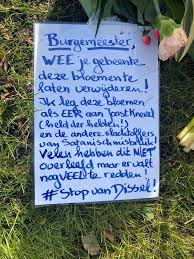 Burgemeester,
WEE je gebeente
deze bloemente
laten verwijderen!
Ik leg deze bloemen
als EER aan Joost Knevel
(held der helden!)
en de andere slachtoffers
van Satanischmisbruik!
Velen hebben dit NIET
overleefd maar er valt
nog VEEL te redden!
#Stop van Dissel!